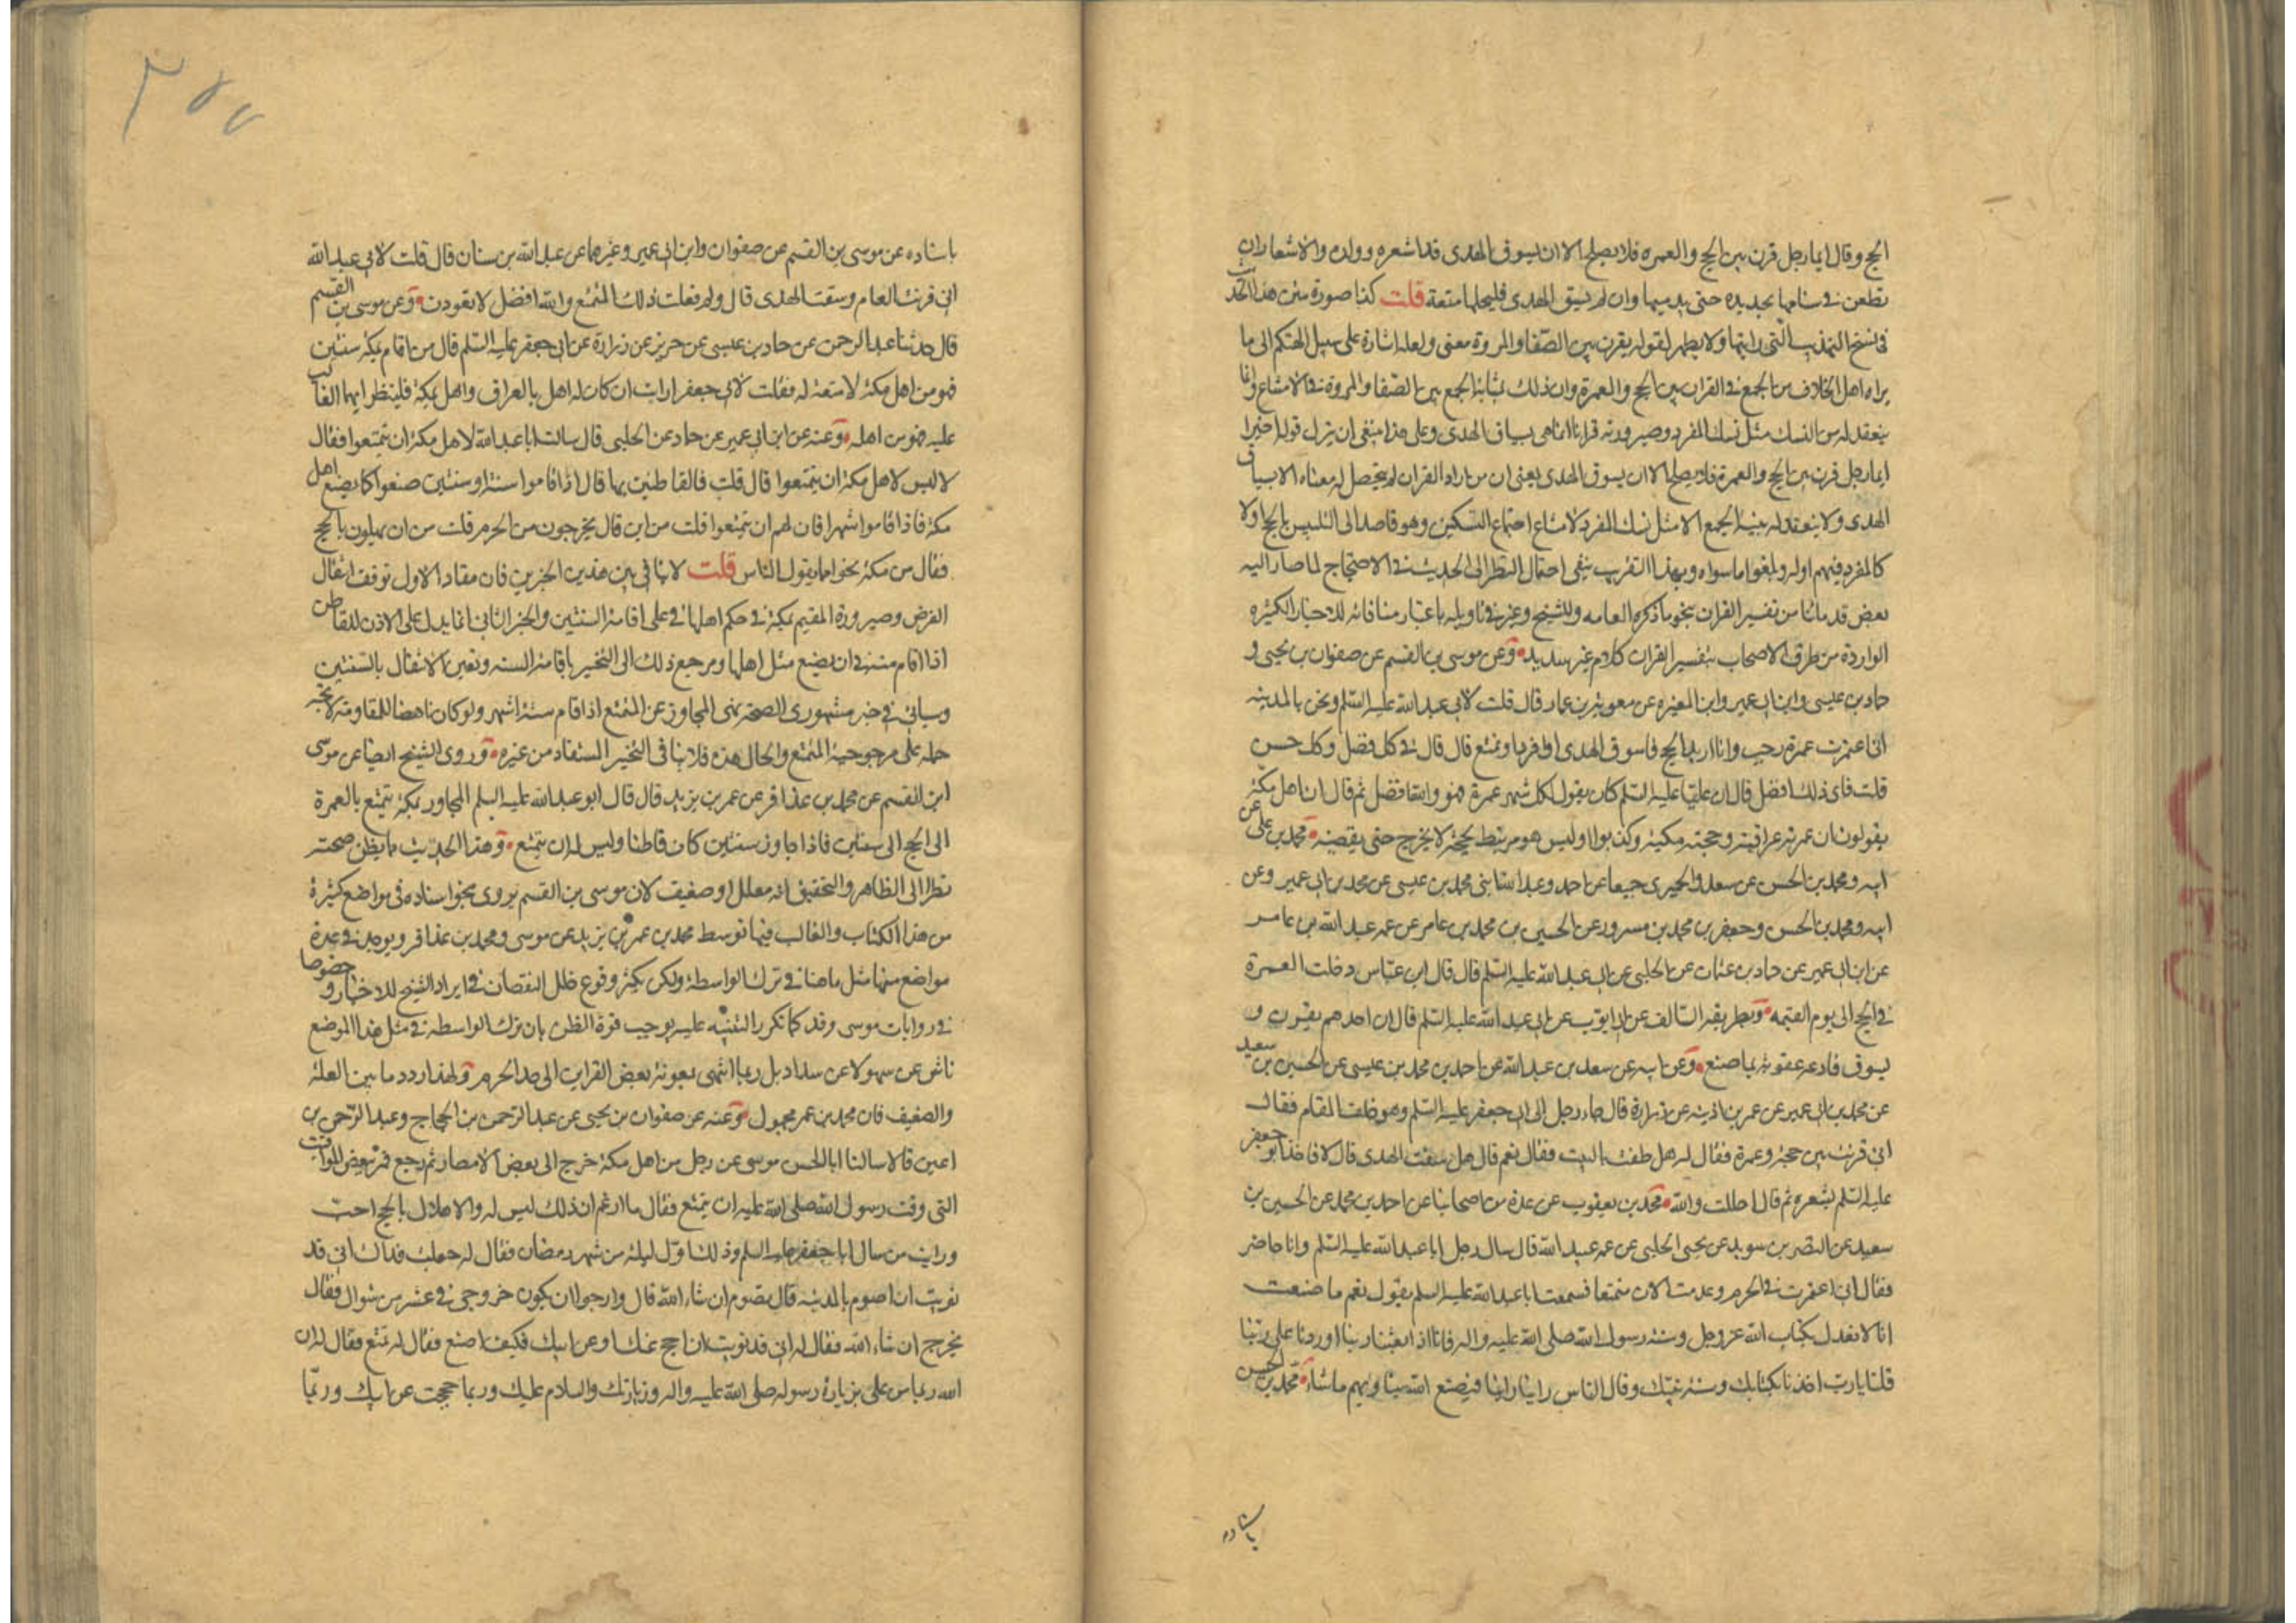 الحج وقال ايما رجل قرن بين الحج والعمرة فلا يصلح الا ان يسوق الهدى قد اشعره وقلده والاشعار ان
تطعن في سنامها بحديدة حتى يدميها وان لم يسق الهدى فليجعلها متعة قلت كذا صورة متن هذا الحديث
في نسخ التهذيب التي رايتها ولا يظهر لقوله يقرن بين الصفا والمروة معنى ولعله اشارة على سبيل التهكم الى ما
يراه اهل الخلاف من الجمع في القران بين الحج والعمرة وان ذلك بمثابة الجمع بين الصفا والمروة في الامتناع وانما
ينعقد له من النسك مثل نسك المفرد وصيرورته قرانا انما هي بسياق الهدى وعلى هذا ينبغي ان ينزل قوله اخيرا
ايما رجل قرن بين الحج والعمرة فلا يصلح الا ان يسوق الهدى يعني ان من اراد القران لم يتحصل له معناه الا بسياق
الهدى ولا ينعقد له بنية الجمع الا مثل نسك المفرد لامتناع اجتماع النسكين وهو قاصد الى التلبس بالحج اولا
كالمفرد فيهم اوله ويلغوا ما سواه وبهذا التقريب ينفى احتمال النظر الى الحديث في الاحتجاج لما صار اليه
بعض قدمائنا من تفسير القران بنحو ما ذكره العامه وللشيخ وغيره في تاويله باعتبار منافاته للاخبار الكثيره
الواردة من طرق الاصحاب بتفسير القران كلام غير سديد وعن موسى بن القسم عن صفوان بن يحيى و
حماد بن عيسى وابن ابي عمير وابن المغيره عن معوية بن عمار قال قلت لابي عبد الله عليه السلم ونحن بالمدينه
اني اعتمرت عمرة رجب وانا اريد الحج فاسوق الهدى او افرد او تمتع قال قال في كل فضل وكل حسن
قلت فاي ذلك افضل قال ان عليا عليه السلم كان يقول لكل شهر عمرة تمتع فهو والله افضل ثم قال ان اهل مكة
يقولون ان عمرته عراقية وحجته مكية وكذبوا اوليس هو مرتبط بحجة لا يخرج حتى يقضيه محمد بن علي عن
ابيه ومحمد بن الحسن عن سعد والحميري جميعا عن احمد وعبد الله ابني محمد بن عيسى عن محمد بن ابي عمير وعن
ابيه ومحمد بن الحسن وجعفر بن محمد بن مسرور عن الحسين بن محمد بن عامر عن عمه عبد الله بن عامر
عن ابن ابي عمير عن حماد بن عثمان عن الحلبي عن ابي عبد الله عليه السلم قال قال ابن عباس دخلت العمرة
في الحج الى يوم القيمه وبطريقه السالف عن ابي ايوب عن ابي عبد الله عليه السلم قال ان احدهم يقرن و
يسوق فادعه عقوبة بما صنع وعن ابيه عن سعد بن عبد الله عن احمد بن محمد بن عيسى عن الحسين بن سعيد
عن محمد بن ابي عمير عن عمر بن اذينه عن زرارة قال جاء رجل الى ابي جعفر عليه السلم وهو خلف المقام فقال
اني قرنت بين حجة وعمرة فقال له هل طفت بالبيت فقال نعم قال هل سقت الهدى قال لا فاخذ ابو جعفر
عليه السلم بشعره ثم قال احللت والله محمد بن يعقوب عن عدة من اصحابنا عن احمد بن محمد عن الحسين بن
سعيد عن النضر بن سويد عن يحيى الحلبي عن عمه عبيد الله قال سال رجل ابا عبد الله عليه السلم وانا حاضر
فقال اني اعتمرت في الحرم وقدمت الان متمتعا فسمعت ابا عبد الله عليه السلم يقول نعم ما صنعت
انا لا نعدل بكتاب الله عز وجل وسنة رسول الله صلى الله عليه واله فانا اذا بعثنا ربنا او وردنا على ربنا
قلنا يا رب اخذنا بكتابك وسنة نبيك وقال الناس راينا راينا فيصنع الله بنا وبهم ما شاء محمد بن الحسن
باسناده
٣٥٧
باسناده عن موسى بن القسم عن صفوان وابن ابي عمير وغيرهما عن عبد الله بن سنان قال قلت لابي عبد الله
اني قرنت العام وسقت الهدى قال ولم فعلت ذلك التمتع والله افضل لا تعودن وعن موسى بن القسم
قال حدثنا عبد الرحمن عن حماد بن عيسى عن حريز عن زرارة عن ابي جعفر عليه السلم قال من اقام بمكة سنتين
فهو من اهل مكة لا متعة له فقلت لابي جعفر ارايت ان كان له اهل بالعراق واهل بمكة فلينظر ايهما الغالب
عليه فهو من اهله وعنه عن ابن ابي عمير عن حماد عن الحلبي قال سالت ابا عبد الله لاهل مكة ان يتمتعوا فقال
لا ليس لاهل مكة ان يتمتعوا قال قلت فالقاطنين بها قال اذا اقاموا سنة او سنتين صنعوا كما يصنع اهل
مكة فاذا اقاموا شهرا فان لهم ان يتمتعوا قلت من اين قال يخرجون من الحرم قلت من اين يهلون بالحج
فقال من مكة نحوا مما يقول الناس قلت لا تنافي بين هذين الخبرين فان مفاد الاول توقف انتقال
الفرض وصيرورة المقيم بمكة في حكم اهلها على اقامة السنتين والخبر الثاني انما يدل على الاذن للقاطن
اذا اقام سنة في ان يصنع مثل اهلها ومرجع ذلك الى التخيير باقامة السنه وتعين الانتقال بالسنتين
وسياتي في خبر مشهوري الصحة نهى المجاور عن التمتع اذا اقام ستة اشهر ولو كان ناهضا للمقاومة لاتجه
حمله على مرجوحية التمتع والحال هذه فلا ينافي التخيير المستفاد من غيره وروى الشيخ ايضا عن موسى
ابن القسم عن محمد بن عذافر عن عمر بن يزيد قال قال ابو عبد الله عليه السلم المجاور بمكة يتمتع بالعمرة
الى الحج الى سنتين فاذا جاوز سنتين كان قاطنا وليس له ان يتمتع وهذا الحديث مما يظن صحته
نظرا الى الظاهر والتحقيق انه معلل او ضعيف لان موسى بن القسم يروى بنحو اسناده في مواضع كثيرة
من هذا الكتاب والغالب فيها توسط محمد بن عمر بن يزيد بين موسى ومحمد بن عذافر ويوجد في عدة
مواضع منها مثل ما هنا في ترك الواسطة ولكن بكثر وقوع خلل النقصان في ايراد الشيخ للاخبار وخصوصا
في روايات موسى وقد كما تكرر التنبيه عليه يوجب قوة الظن بان ترك الواسطه في مثل هذا الموضع
ناش عن سهو لا عن سداد بل ربما انتهى بمعونة بعض القراين الى حد الجزم ولهذا ردد ما بين العلة
والضعيف فان محمد بن عمر مجهول وعنه عن صفوان بن يحيى عن عبد الرحمن بن الحجاج وعبد الرحمن بن
اعين قالا سالنا ابا الحسن موسى عن رجل من اهل مكة خرج الى بعض الامصار ثم رجع فمر ببعض المواقيت
التي وقت رسول الله صلى الله عليه ان يتمتع فقال ما ازعم ان ذلك ليس له والاهلال بالحج احب
ورايت من سال ابا جعفر عليه السلم وذلك اول ليلة من شهر رمضان فقال له جعلت فداك اني قد
نويت ان اصوم بالمدينه قال تصوم ان شاء الله قال وارجوا ان يكون خروجي في عشر من شوال فقال
يخرج ان شاء الله فقال له اني قد نويت ان احج عنك او عن ابيك فكيف اصنع فقال له تمتع فقال له ان
الله ربما من علي بزيارة رسوله صلى الله عليه واله وزيارتك والسلام عليك وربما حججت عن ابيك وربما